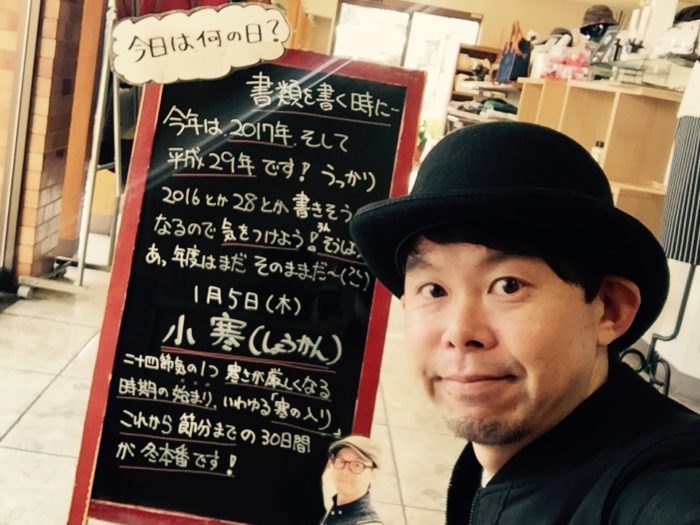 今日は何の日?
書類を書く時に…
今年は、2017年、そして
平成29年です! うっかり
2016とか28とか書きそうに
なるので気をつけよう!
うん、そうしよう
あっ、年度はまだそのままだ〜
1月5日(木)
小寒(しょうかん)
二十四節気の1つ 寒さが厳しくなる
時期の始まり、いわゆる「寒の入り」
これから節分までの30日間
が冬本番です!